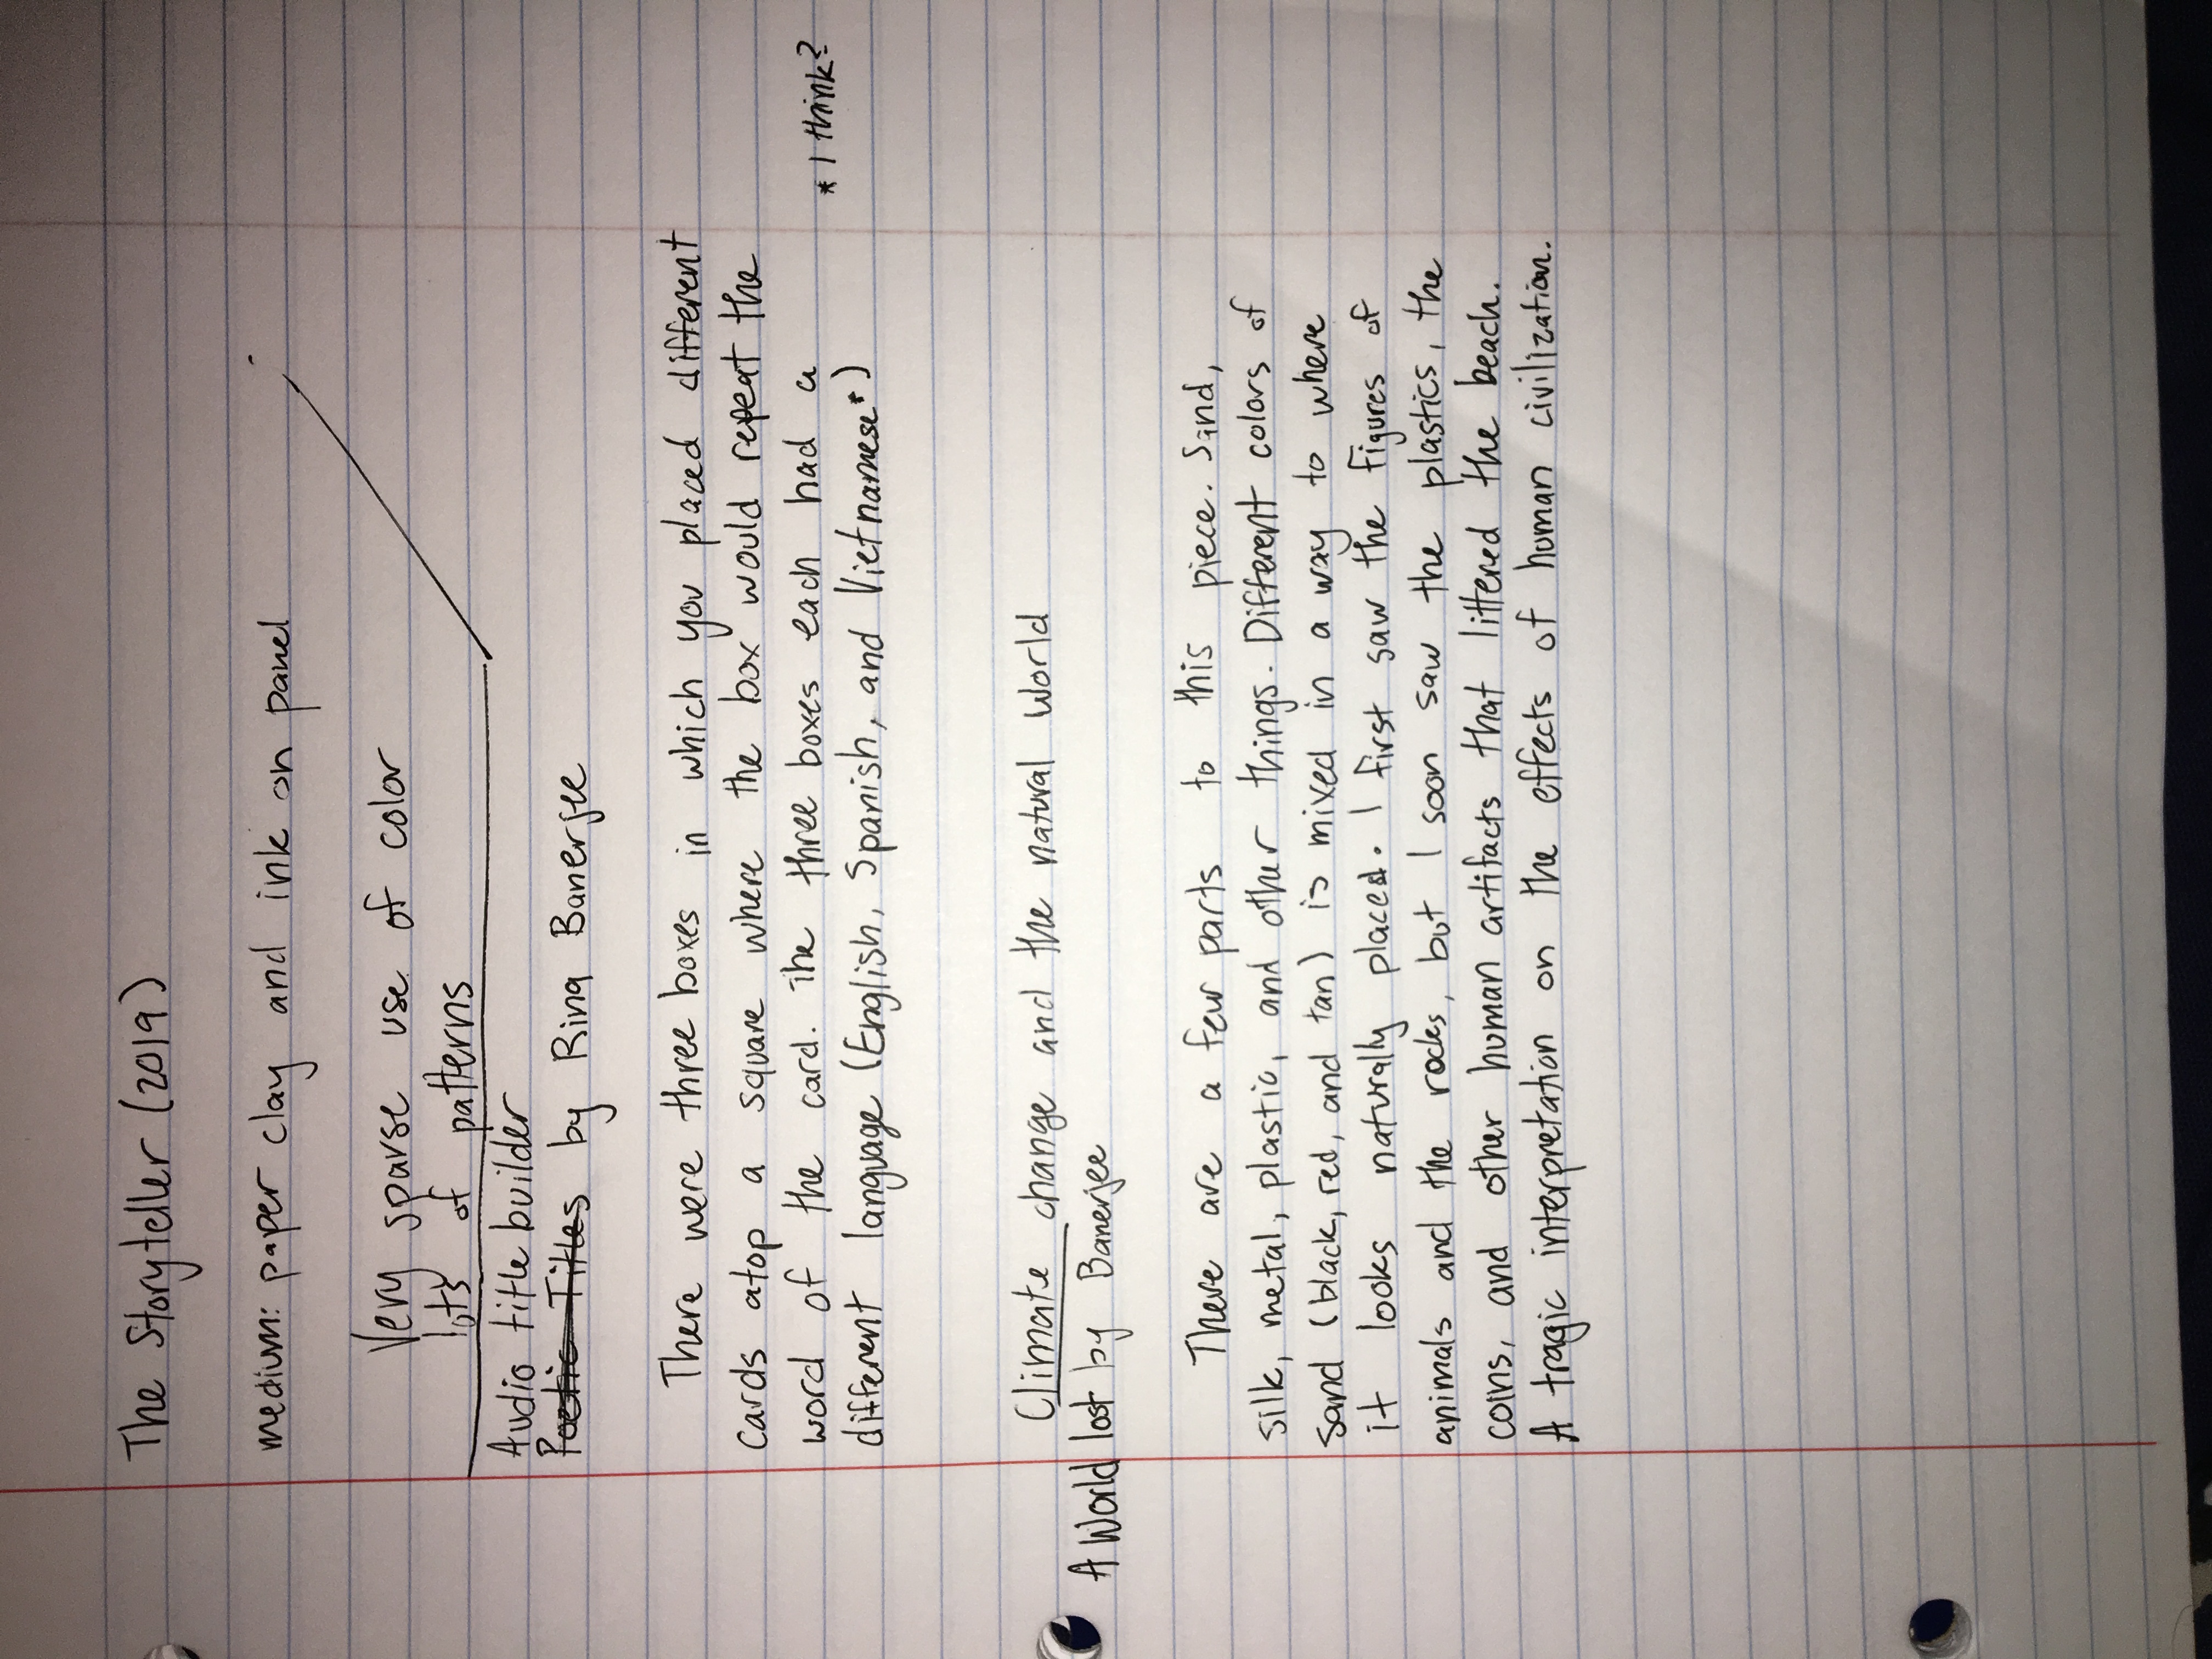 The Storyteller (2019)
medium: paper clay and ink on panel
Very sparse use of color
lots of patterns
Audio title builder
Poetic Titles by Rina Banerjee
There were three boxes in which you placed different
cards atop a square where the box would repeat the
word of the card. The three boxes each had a
different language (English, Spanish, and Vietnamese*)
* I think?
Climate change and the natural world
A World lost by Banerjee
There are a few parts to this piece. Sand,
silk, metal, plastic, and other things. Different colors of
sand (black, red, and tan) is mixed in a way to where
it looks naturally placed. I first saw the figures of
animals and the rocks, but I soon saw the plastics, the
coins, and other human artifacts that littered the beach.
A tragic interpretation on the effects of human civilization.